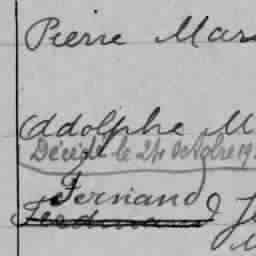 Pierre Mar
Adolphe M
Décédé le 24 octobre 19
Fernand J
Ferdinand